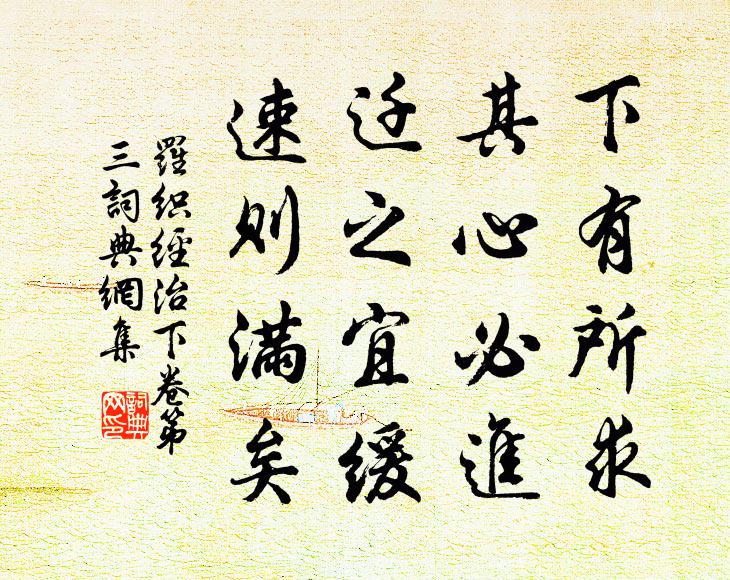 下有所求
其心必進
迁之宜缓
速則滿矣
羅织經治下卷第
三詞典網集
詞典
网印